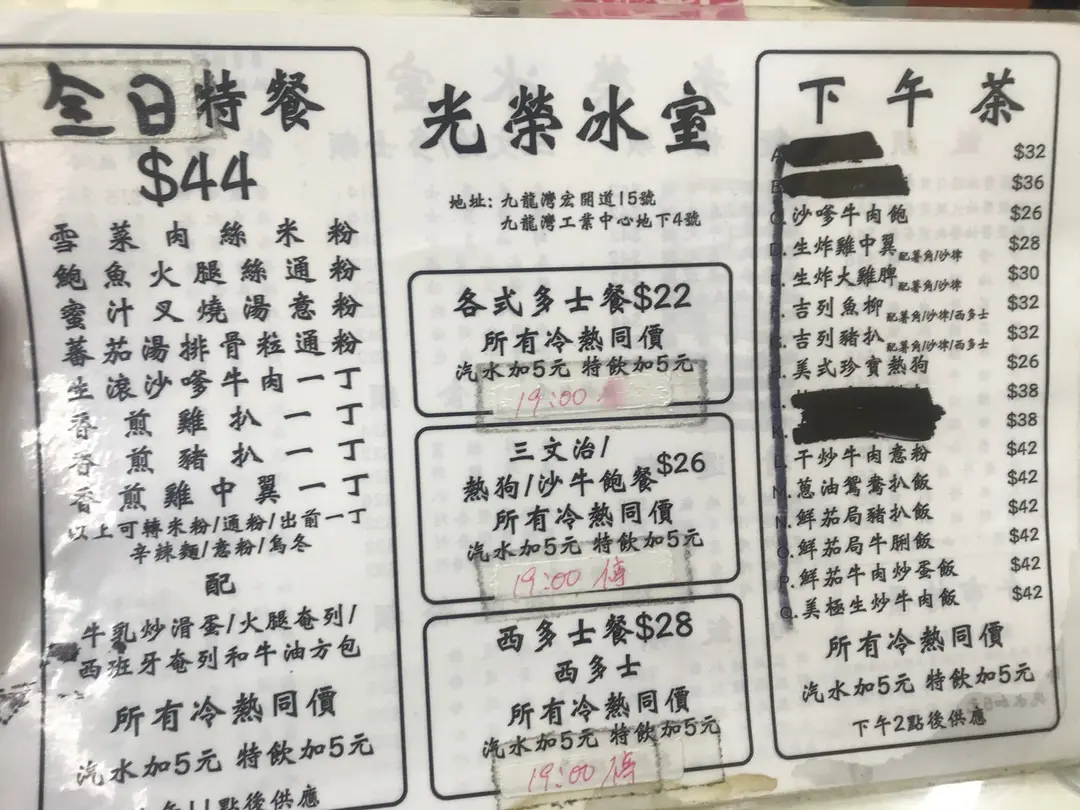 全日特餐
$44
雪菜肉絲米粉
鮑魚火腿絲通粉
蜜汁叉燒湯意粉
蕃茄湯排骨粒通粉
生滾沙嗲牛肉一丁
香煎雞扒一丁
香煎豬扒一丁
香煎雞中翼一丁
以上可轉米粉/通粉/出前一丁
辛辣麵/意粉/烏冬
配
牛乳炒滑蛋/火腿奄列/
西班牙奄列和牛油方包
所有冷熱同價
汽水加5元 特飲加5元
11點後供應
光榮冰室
地址: 九龍灣宏開道15號
九龍灣工業中心地下4號
各式多士餐$22
所有冷熱同價
汽水加5元 特飲加5元
19:00
三文治/
熱狗/沙牛飽餐$26
所有冷熱同價
汽水加5元 特飲加5元
19:00 停
西多士餐$28
西多士
所有冷熱同價
汽水加5元 特飲加5元
19:00 停
下午茶
$32
$36
沙嗲牛肉飽 $26
生炸雞中翼配薯角/沙律 $28
生炸大雞脾配薯角/沙律 $30
吉列魚柳配薯角/沙律/西多士 $32
吉列豬扒配薯角/沙律/西多士 $32
美式珍寶熱狗 $26
$38
$38
干炒牛肉意粉 $42
M.蔥油鴛鴦扒飯 $42
N.鮮茄局豬扒飯 $42
O.鮮茄局牛脷飯 $42
P.鮮茄牛肉炒蛋飯 $42
Q.美極生炒牛肉飯 $42
所有冷熱同價
汽水加5元 特飲加5元
下午2點後供應